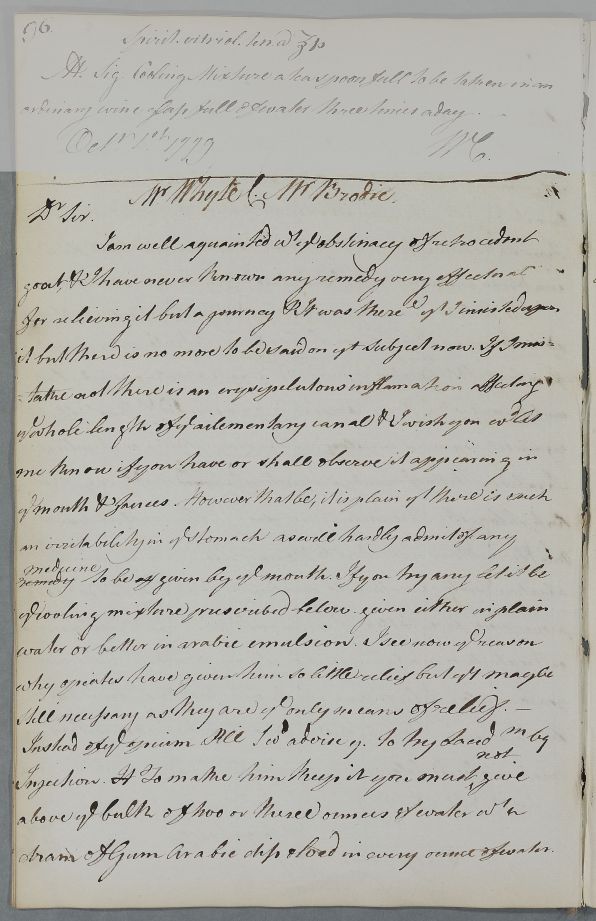 96.
Spirit. vitriol. ten. ʒ
Sig. Cooling Mixture a teaspoonfull to be taken in an
ordinary wine glass full of water three times a day.
Octr. 1st. 1779 WC.
Mr Whyte C. Mr Brodie.
Dr Sir.
I am well aquainted wt ye obstinacy of retrocedent
gout, & I have never known any remedy very effectual
for relieving it but a journey & It was there yt I insisted upon
it but there is no more to be said on yt subject now. If I mis-
-take not there is an erysipelatous inflamation affecting
ye whole length of ye ailementary canal & I wish you wd let
me know if you have or shall observe it appearing in
ye mouth & fauces. However that be, it is plain yt there is such
an irritability in ye stomach as will hardly admit of any
medicine
remedy to be given by ye mouth. If you try any let it be
ye cooling mixture prescribed below given either in plain
water or better in arabic emulsion. I see now ye reason
why opiates have given him so little relief but yt may be
still necessary as they are ye only means of relief. —
Instead of ye opium I wd advise y. to try by
Injection. To make him keep it you must not give
above ye bulk of two or three ounces of water wt a
dram of Gum Arabic dissolved in every ounce of water.